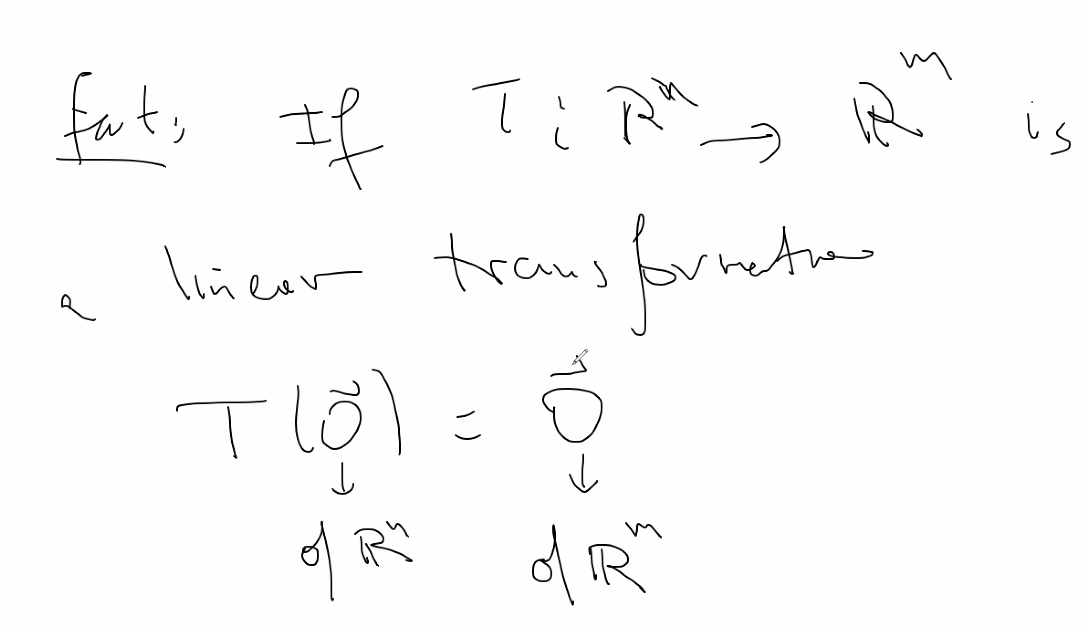 Fact: If T: ℝⁿ → ℝᵐ is
a linear transformation
T(0⃗) = 0⃗
↓ ↓
of ℝⁿ of ℝᵐ